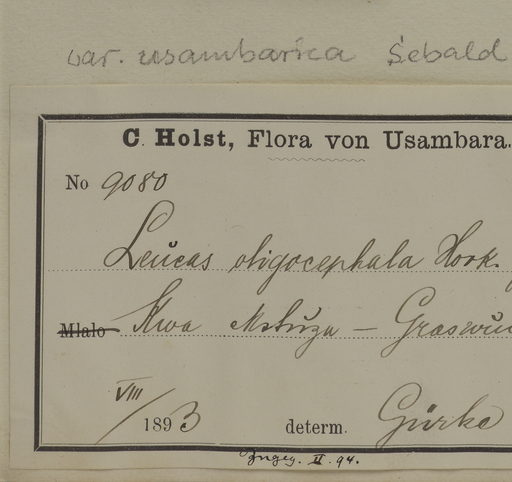 var. usambarica Sebald
C. Holst, Flora von Usambara.
No 9080
Leucas oligocephala Hook.
Mlalo Kwa Mstuza –
VIII / 1893 determ. Gürke
Ingeg. II. 94.